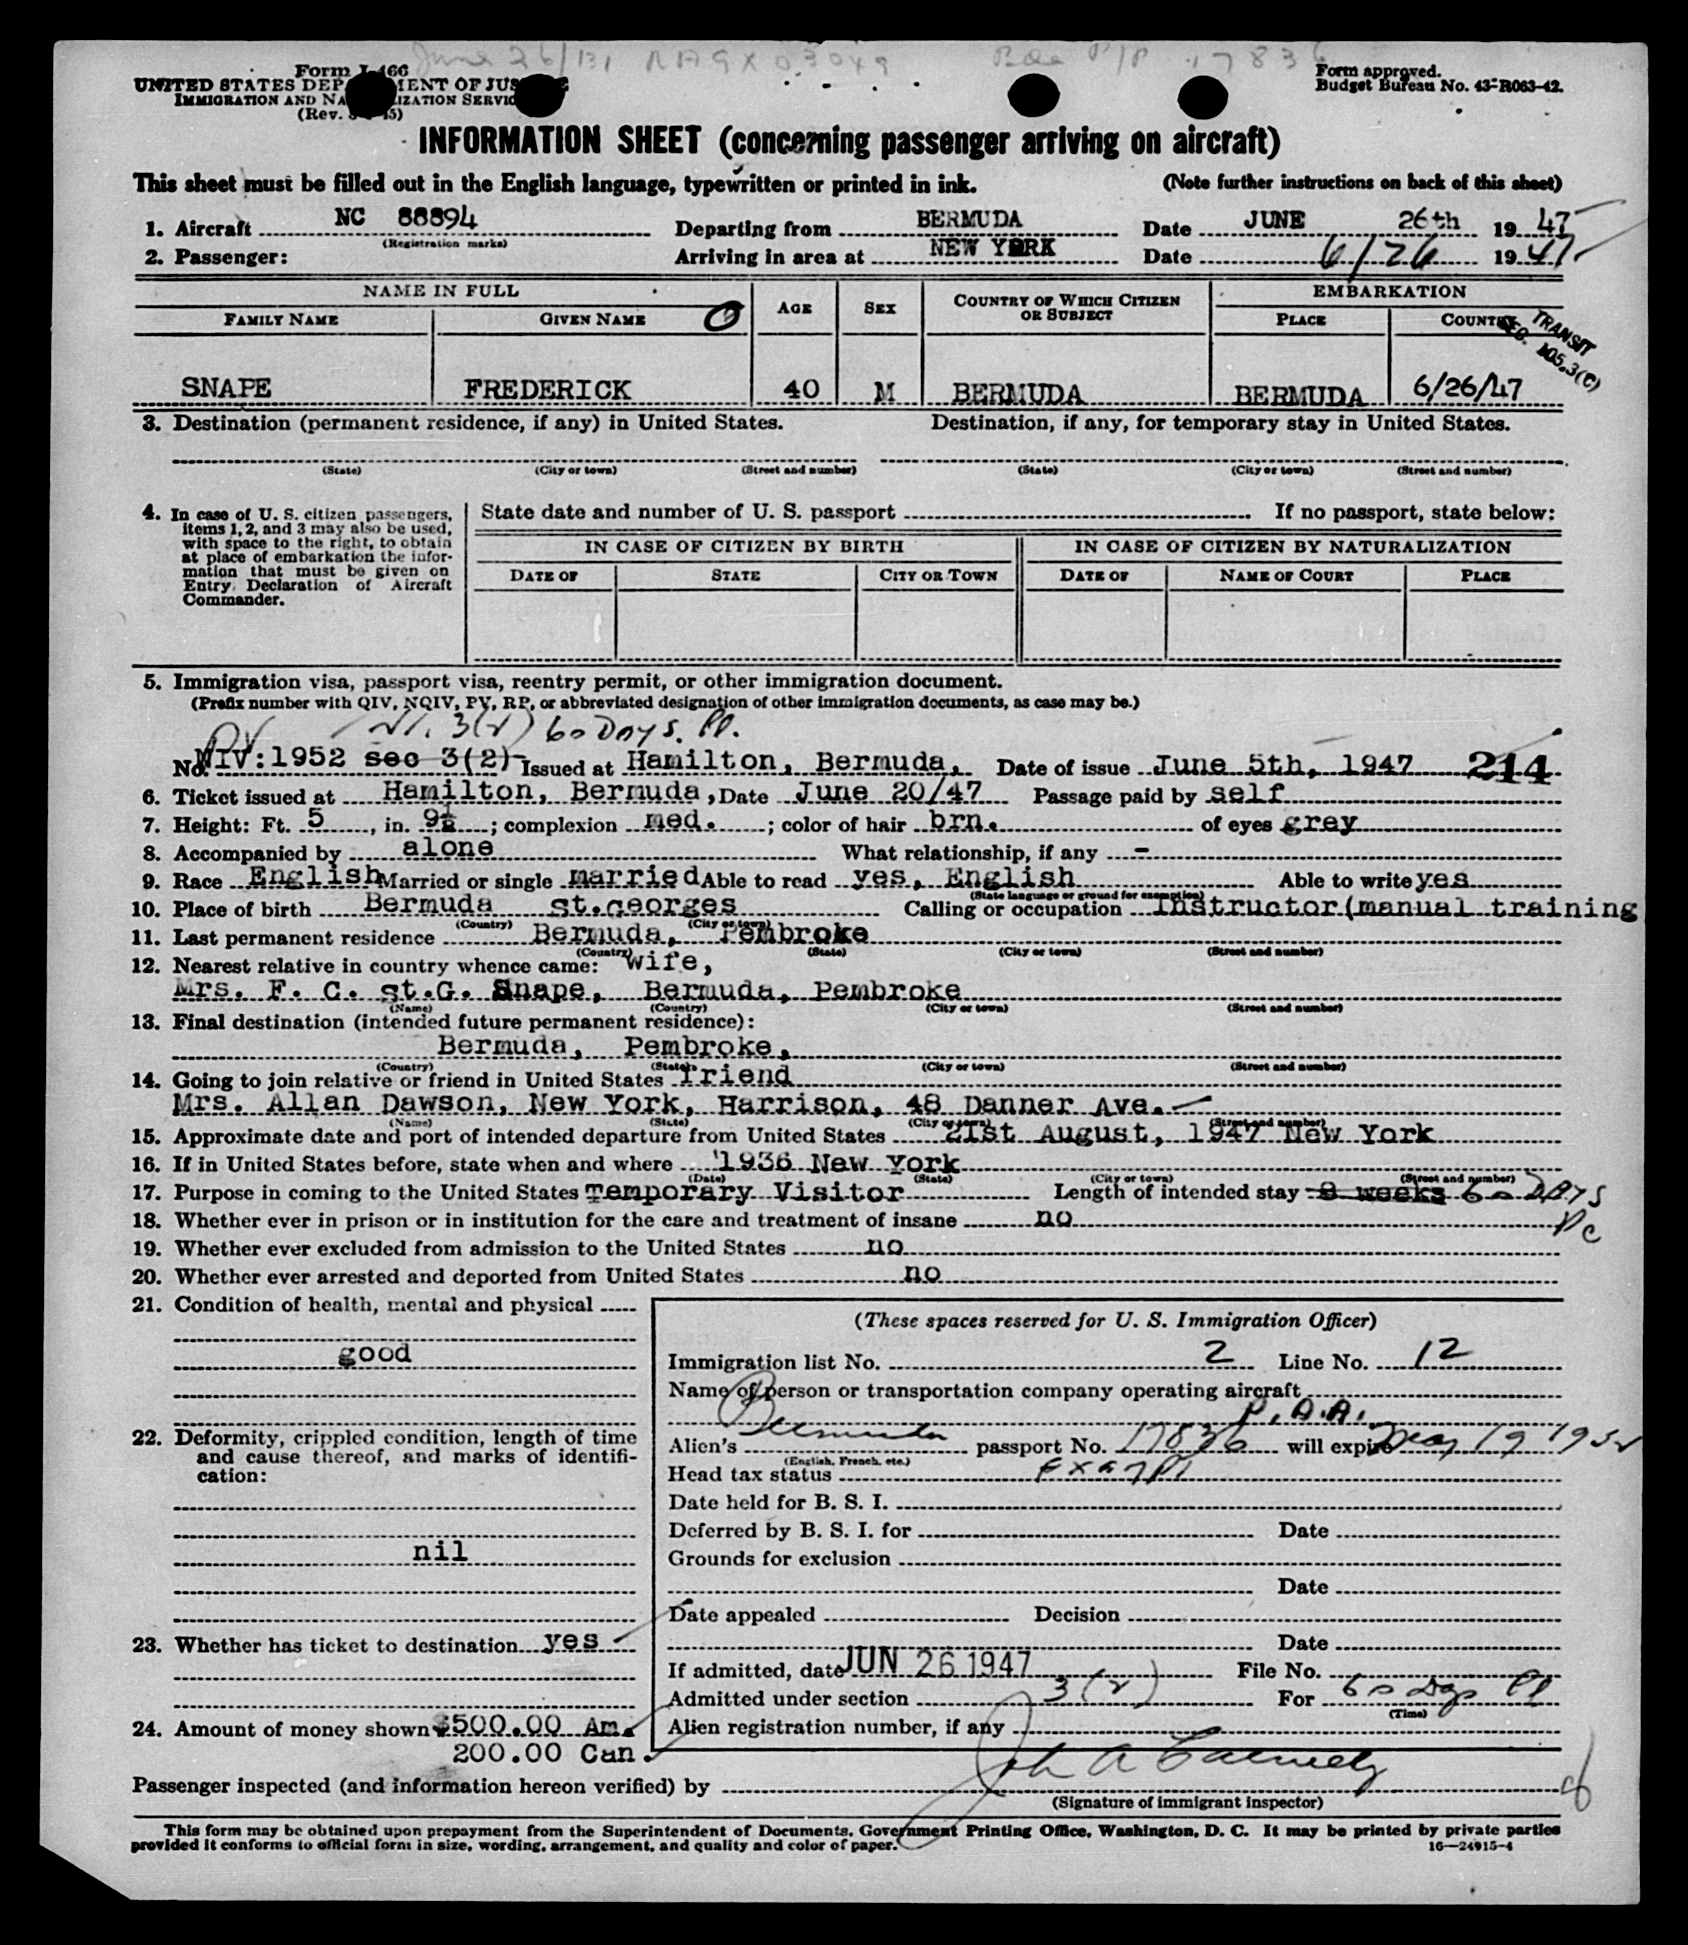 June 26/131
17836
Form I-466
UNITED STATES DEPARTMENT OF JUSTICE
IMMIGRATION AND NATURALIZATION SERVICE
(Rev. 45)
Form approved.
Budget Bureau No. 43-R063-42.
INFORMATION SHEET (concerning passenger arriving on aircraft)
This sheet must be filled out in the English language, typewritten or printed in ink. (Note further instructions on back of this sheet)
1. Aircraft NC 88894 Departing from BERMUDA Date JUNE 26th 1947
(Registration marks)
2. Passenger: Arriving in area at NEW YORK Date 6/26 1947
NAME IN FULL AGE SEX COUNTRY OF WHICH CITIZEN OR SUBJECT EMBARKATION
FAMILY NAME GIVEN NAME PLACE COUNTRY
TRANSIT
SEC. 105.3(C)
SNAPE FREDERICK 40 M BERMUDA BERMUDA 6/26/47
3. Destination (permanent residence, if any) in United States. Destination, if any, for temporary stay in United States.
(State) (City or town) (Street and number) (State) (City or town) (Street and number)
4. In case of U. S. citizen passengers, items 1, 2, and 3 may also be used, with space to the right, to obtain at place of embarkation the information that must be given on Entry Declaration of Aircraft Commander.
State date and number of U. S. passport If no passport, state below:
IN CASE OF CITIZEN BY BIRTH IN CASE OF CITIZEN BY NATURALIZATION
DATE OF STATE CITY OR TOWN DATE OF NAME OF COURT PLACE
5. Immigration visa, passport visa, reentry permit, or other immigration document.
(Prefix number with QIV, NQIV, PV, RP, or abbreviated designation of other immigration documents, as case may be.)
PV 3(2) 60 Days.
No. NIV:1952 sec 3(2) Issued at Hamilton, Bermuda, Date of issue June 5th, 1947 214
6. Ticket issued at Hamilton, Bermuda, Date June 20/47 Passage paid by self
7. Height: Ft. 5, in. 9½; complexion med.; color of hair brn. of eyes grey
8. Accompanied by alone What relationship, if any -
9. Race English Married or single married Able to read yes, English Able to write yes
(State language or ground for exemption)
10. Place of birth Bermuda St.Georges Calling or occupation Instructor(manual training
(Country) (City or town)
11. Last permanent residence Bermuda, Pembroke
(Country) (State) (City or town) (Street and number)
12. Nearest relative in country whence came: wife,
Mrs. F. C. St.G. Snape, Bermuda, Pembroke
(Name) (Country) (City or town) (Street and number)
13. Final destination (intended future permanent residence):
Bermuda, Pembroke,
(Country) (State) (City or town) (Street and number)
14. Going to join relative or friend in United States friend
Mrs. Allan Dawson, New York, Harrison, 48 Danner Ave.
(Name) (State) (City or town) (Street and number)
15. Approximate date and port of intended departure from United States 21st August, 1947 New York
16. If in United States before, state when and where 1936 New York
(Date) (State) (City or town) (Street and number)
17. Purpose in coming to the United States Temporary Visitor Length of intended stay 8 weeks 60 DAYS
18. Whether ever in prison or in institution for the care and treatment of insane no
19. Whether ever excluded from admission to the United States no
20. Whether ever arrested and deported from United States no
21. Condition of health, mental and physical
good
22. Deformity, crippled condition, length of time and cause thereof, and marks of identification:
nil
23. Whether has ticket to destination yes
24. Amount of money shown $500.00 Am.
200.00 Can.
(These spaces reserved for U. S. Immigration Officer)
Immigration list No. 2 Line No. 12
Name of person or transportation company operating aircraft
P.A.A.
Alien's Bermuda passport No. 17836 will expire May 19 1952
(English, French, etc.)
Head tax status Exempt
Date held for B. S. I.
Deferred by B. S. I. for Date
Grounds for exclusion
Date
Date appealed Decision
Date
If admitted, date JUN 26 1947 File No.
Admitted under section 3(2) For 60 Dys
(Time)
Alien registration number, if any
Passenger inspected (and information hereon verified) by
(Signature of immigrant inspector)
This form may be obtained upon prepayment from the Superintendent of Documents, Government Printing Office, Washington, D. C. It may be printed by private parties
provided it conforms to official form in size, wording, arrangement, and quality and color of paper. 16—24915-4